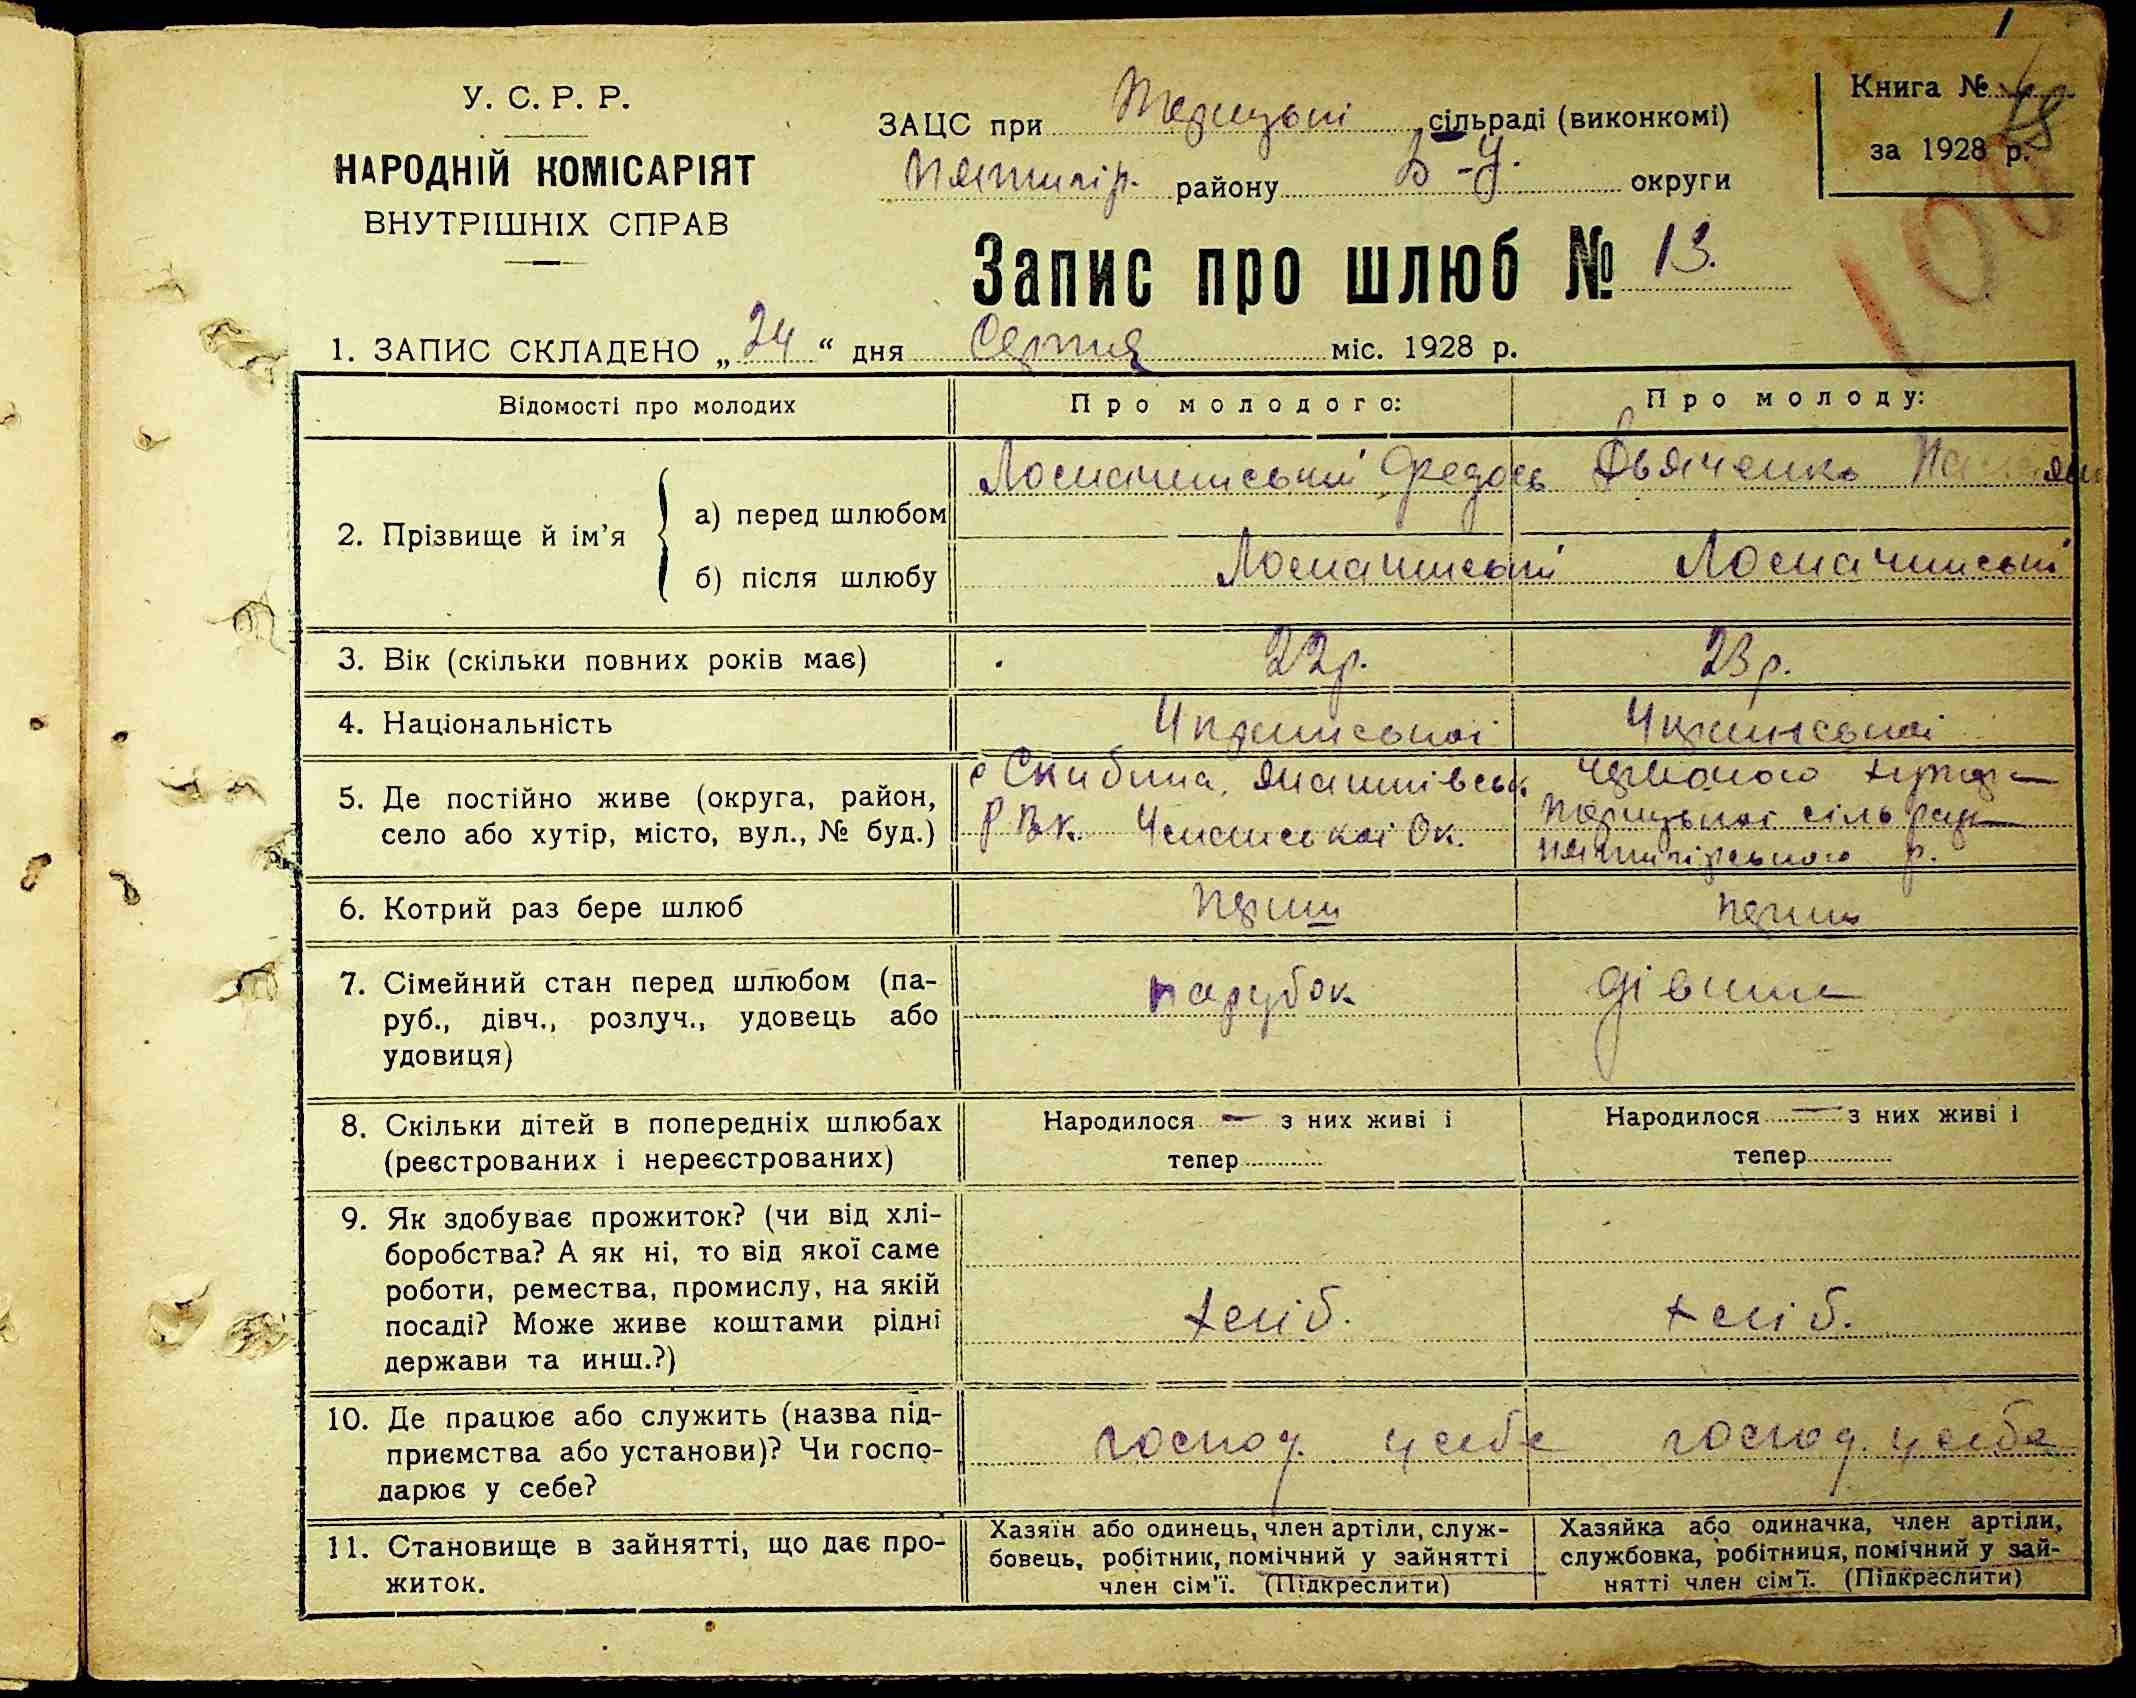 1
У. С. Р. Р.
НАРОДНІЙ КОМІСАРІЯТ
ВНУТРІШНІХ СПРАВ
ЗАЦС при сільраді (виконкомі)
Пятигір. району Б-Ц. округи
Книга №
за 1928 р.
Запис про шлюб № 13.
1. ЗАПИС СКЛАДЕНО „ 24 “ дня Серпня міс. 1928 р.
Відомості про молодих
Про молодого:
Про молоду:
2. Прізвище й ім’я
а) перед шлюбом
Федось Дьяченко
б) після шлюбу
3. Вік (скільки повних років має)
22р.
23р.
4. Національність
Української
5. Де постійно живе (округа, район,
село або хутір, місто, вул., № буд.)
с Скибина,
РВК. Ок.
сільради
Пятигірського р.
6. Котрий раз бере шлюб
перший
перший
7. Сімейний стан перед шлюбом (па-
руб., дівч., розлуч., удовець або
удовиця)
парубок
дівчина
8. Скільки дітей в попередніх шлюбах
(реєстрованих і нереєстрованих)
Народилося — з них живі і
тепер
Народилося — з них живі і
тепер
9. Як здобуває прожиток? (чи від хлі-
боробства? А як ні, то від якої саме
роботи, ремества, промислу, на якій
посаді? Може живе коштами рідні
держави та инш.?)
хліб.
хліб.
10. Де працює або служить (назва під-
приємства або установи)? Чи госпо-
дарює у себе?
господ. у себе
господ. у себе
11. Становище в зайнятті, що дає про-
житок.
Хазяїн або одинець, член артіли, служ-
бовець, робітник, помічний у зайнятті
член сім’ї. (Підкреслити)
Хазяйка або одиначка, член артіли,
службовка, робітниця, помічний у зай-
нятті член сім’ї. (Підкреслити)